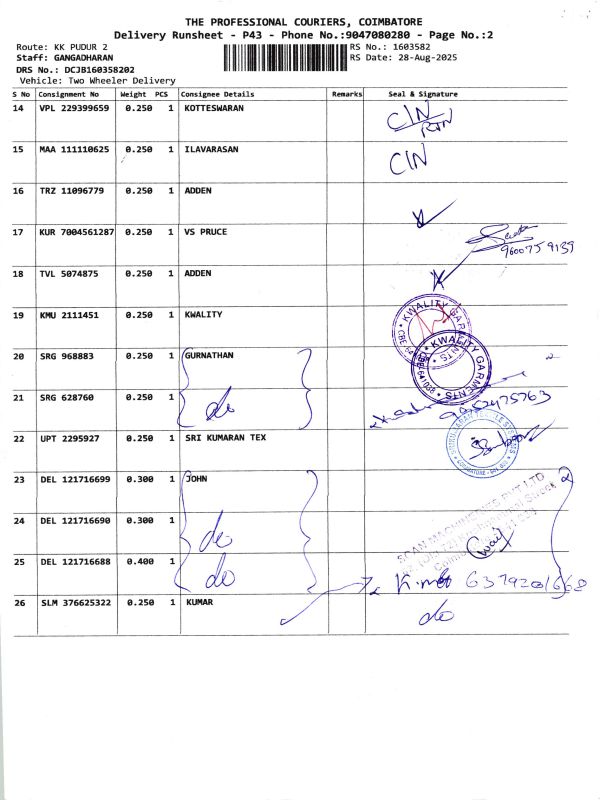 THE PROFESSIONAL COURIERS, COIMBATORE
Delivery Runsheet - P43 - Phone No.:9047080280 - Page No.:2
Route: KK PUDUR 2 RS No.: 1603582
Staff: GANGADHARAN RS Date: 28-Aug-2025
DRS No.: DCJB160358202
Vehicle: Two Wheeler Delivery
S No Consignment No Weight PCS Consignee Details Remarks Seal & Signature
14 VPL 229399659 0.250 1 KOTTESWARAN CIN
RTN
15 MAA 111110625 0.250 1 ILAVARASAN CIN
16 TRZ 11096779 0.250 1 ADDEN
17 KUR 7004561287 0.250 1 VS PRUCE
9600759139
18 TVL 5074875 0.250 1 ADDEN
19 KMU 2111451 0.250 1 KWALITY
KWALITY GARMENTS
KWALITY GARMENTS
20 SRG 968883 0.250 1 GURNATHAN
21 SRG 628760 0.250 1 do 9952475763
22 UPT 2295927 0.250 1 SRI KUMARAN TEX
23 DEL 121716699 0.300 1 JOHN
SCAN MACHINERIES PVT LTD
24 DEL 121716690 0.300 1 do
25 DEL 121716688 0.400 1 do 6379201668
26 SLM 376625322 0.250 1 KUMAR do